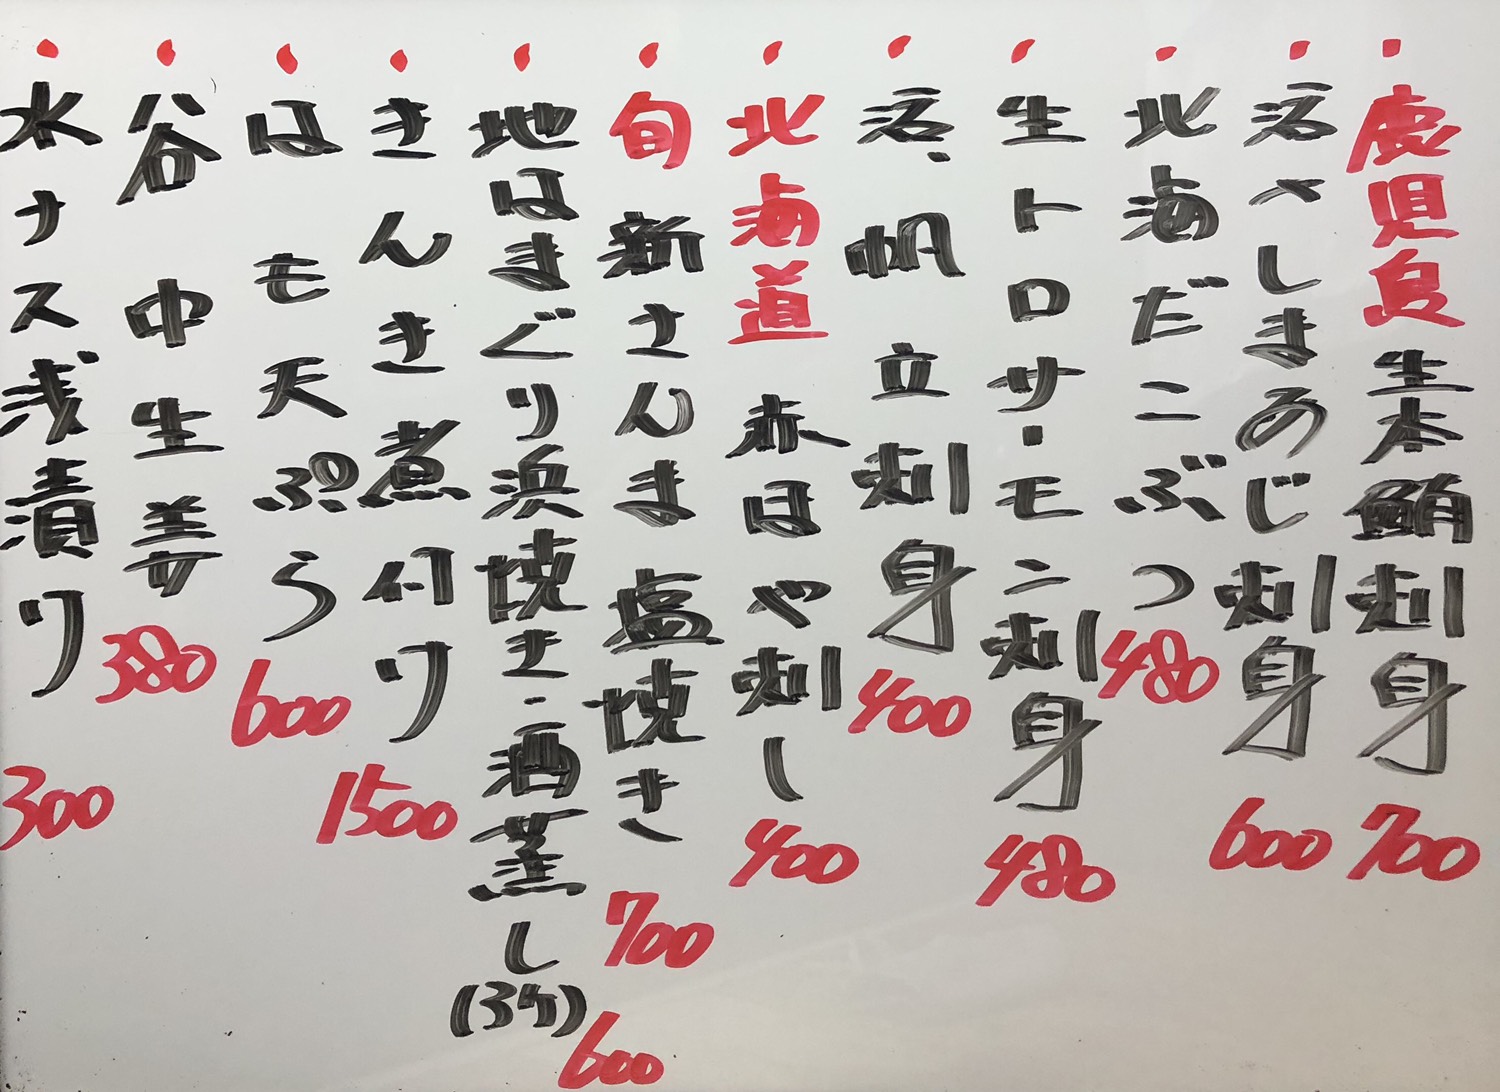 鹿児島生本鮪刺身 700
活〆しまあじ刺身 600
北海だこぶつ 480
生トロサーモン刺身 480
活帆立刺身 400
北海道赤ほや刺し 400
旬新さんま塩焼き 700
地はまぐり浜焼き・酒蒸し(3ケ) 600
きんき煮付け 1500
はも天ぷら 600
谷中生姜 380
水ナス浅漬け 300